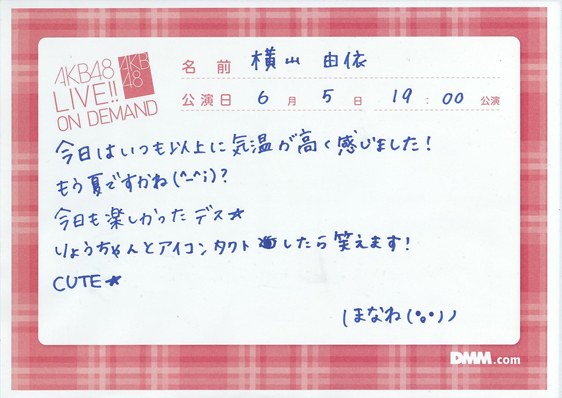 AKB48
LIVE!!
ON DEMAND
AKB
48
名前 横山 由依
公演日 6月 5日 19:00 公演
今日はいつも以上に気温が高く感じました!
もう夏ですかね(^_^;)?
今日も楽しかったデス★
りょうちゃんとアイコンタクトしたら笑えます!
CUTE★
ほなね(°o°)ノ
DMM.com